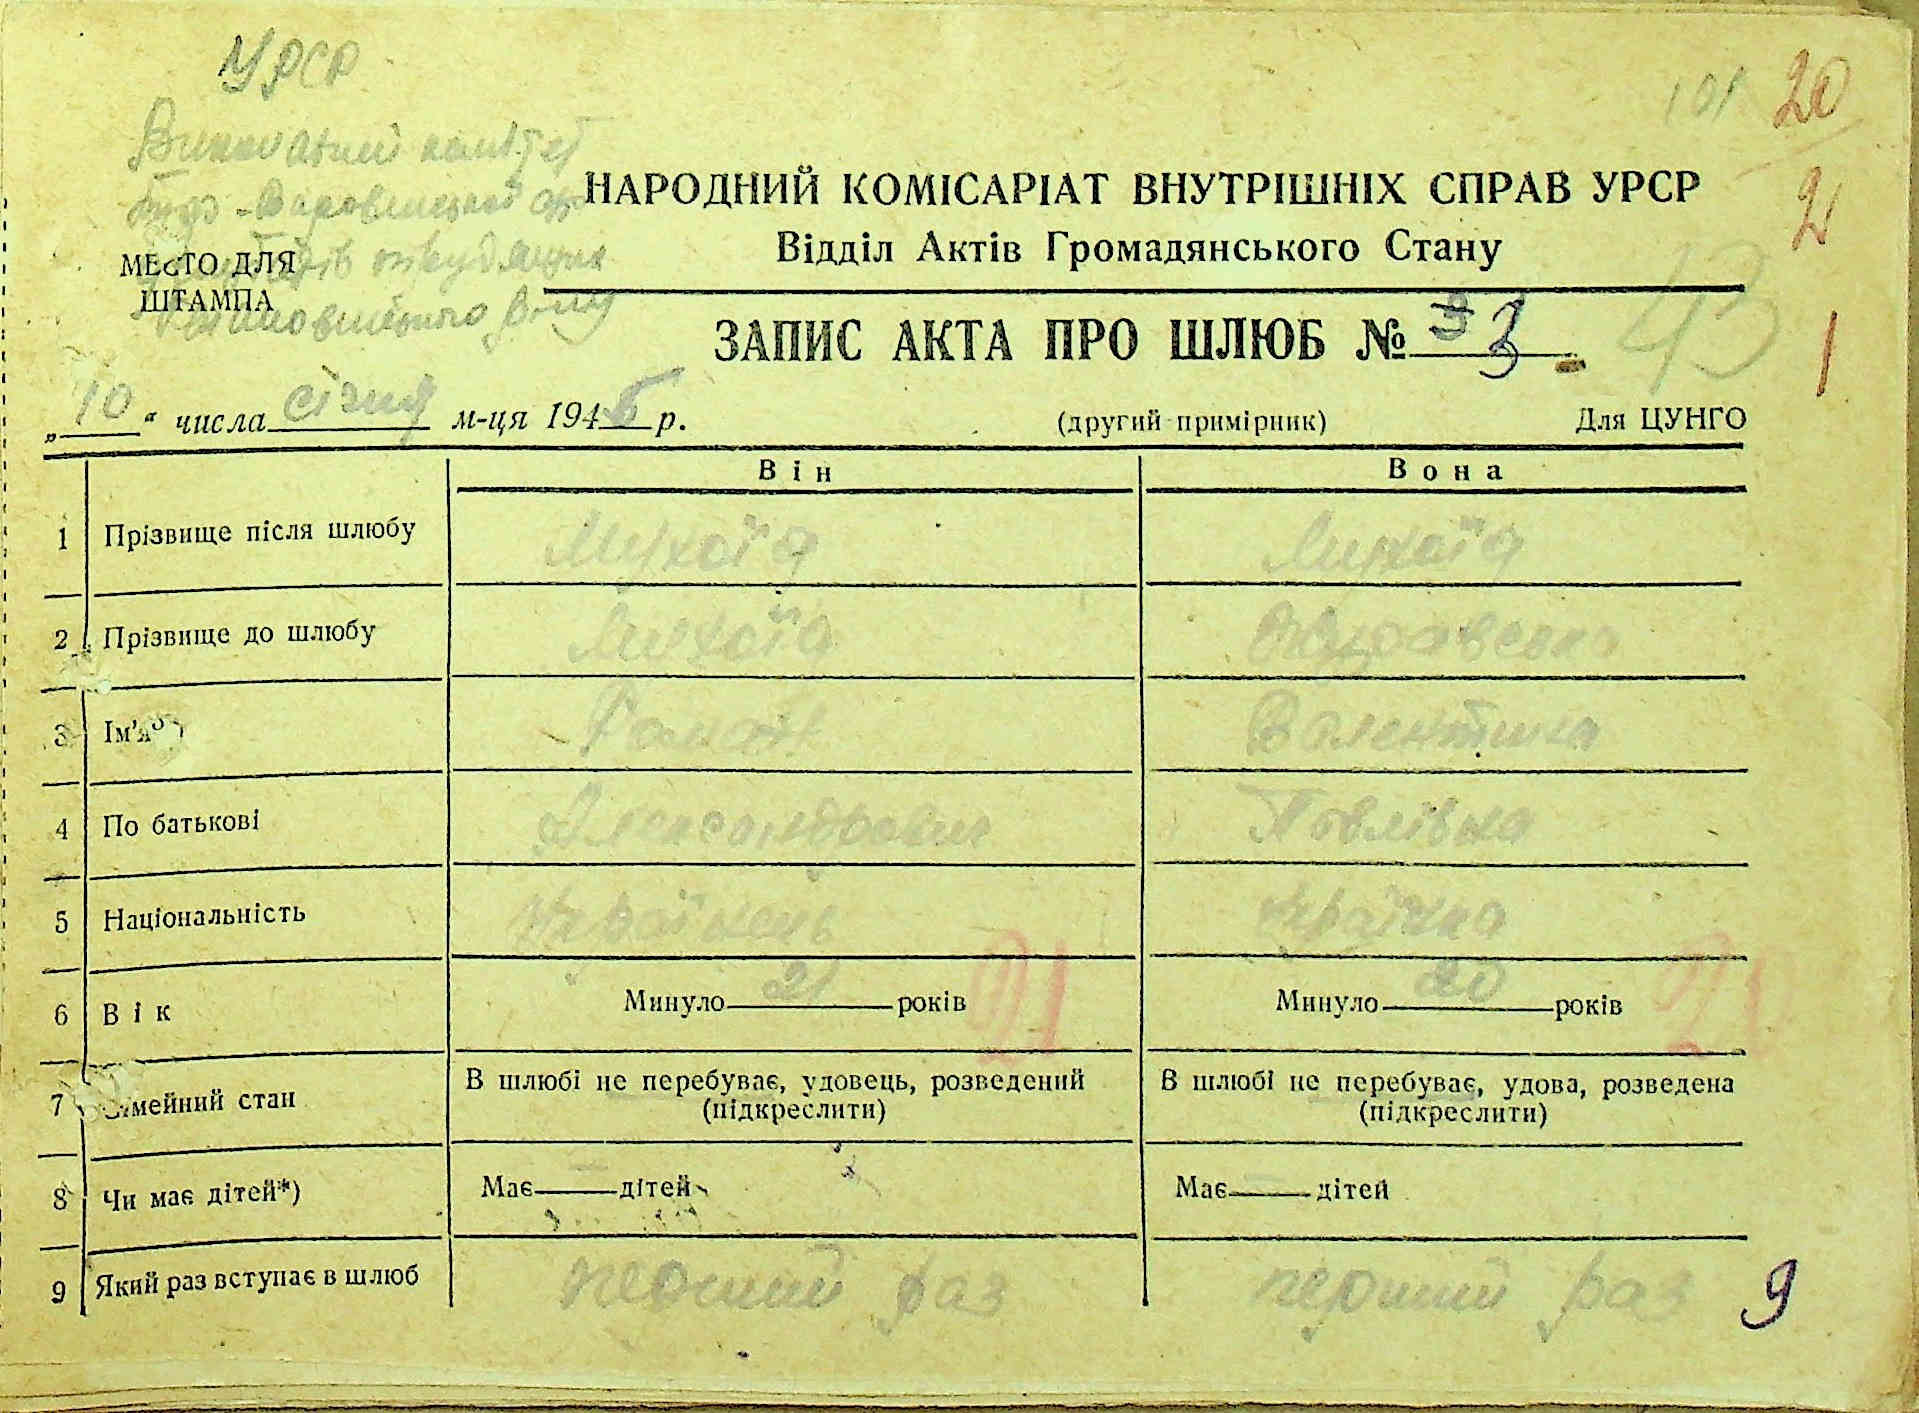 УРСР
101 20
Виконавчий комітет
НАРОДНИЙ КОМІСАРІАТ ВНУТРІШНІХ СПРАВ УРСР
21
Відділ Актів Громадянського Стану
МЕСТО ДЛЯ
ШТАМПА
ЗАПИС АКТА ПРО ШЛЮБ № 3
43
1
„10“ числа січня м-ця 194 р.
(другий примірник) Для ЦУНГО
Він Вона
1 Прізвище після шлюбу
2 Прізвище до шлюбу
3 Ім'я Роман Валентина
4 По батькові Павлівна
5 Національність Українець Українка
6 Вік Минуло 21 років 21 Минуло 20 років
7 мейний стан В шлюбі не перебуває, удовець, розведений (підкреслити) В шлюбі не перебуває, удова, розведена (підкреслити)
8 Чи має дітей*) Має — дітей Має — дітей
9 Який раз вступає в шлюб перший раз перший раз
9